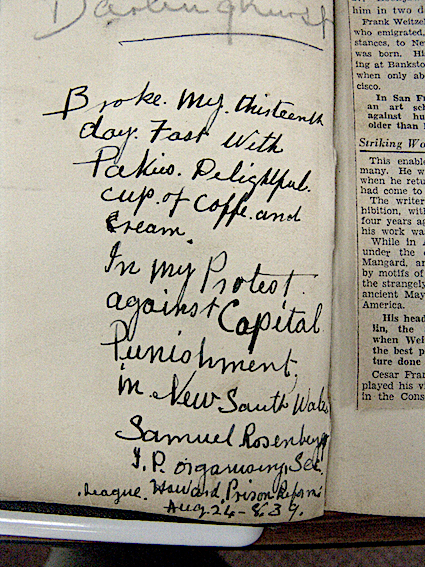 Darlinghurst
Broke. My. thirteenth
day. Fast With
Pakies. Delightful.
cup. of Coffe. and
Cream.
In my Protest.
against Capital.
Punishment.
in. New South Wales
Samuel Rosenberg
J. P. organising. Sec.
League. Howard. Prison Reform
Aug. 24 - 8. 39.
him in two d
Frank Weitzel
who emigrated,
stances, to Ne
was born. Hi
ing at Banksto
when only ab
cisco.
In San F
an art sc
against hu
older than
Striking Wo
This enable
many. He w
when he retu
had come to
The writer
hibition, with
four years ag
his work wa
While in A
under the
Mangard, an
by motifs of
the strangely
ancient May
America.
His head
lin, the
when Wei
the best p
ture done
Cesar Fran
played his vi
in the Cons